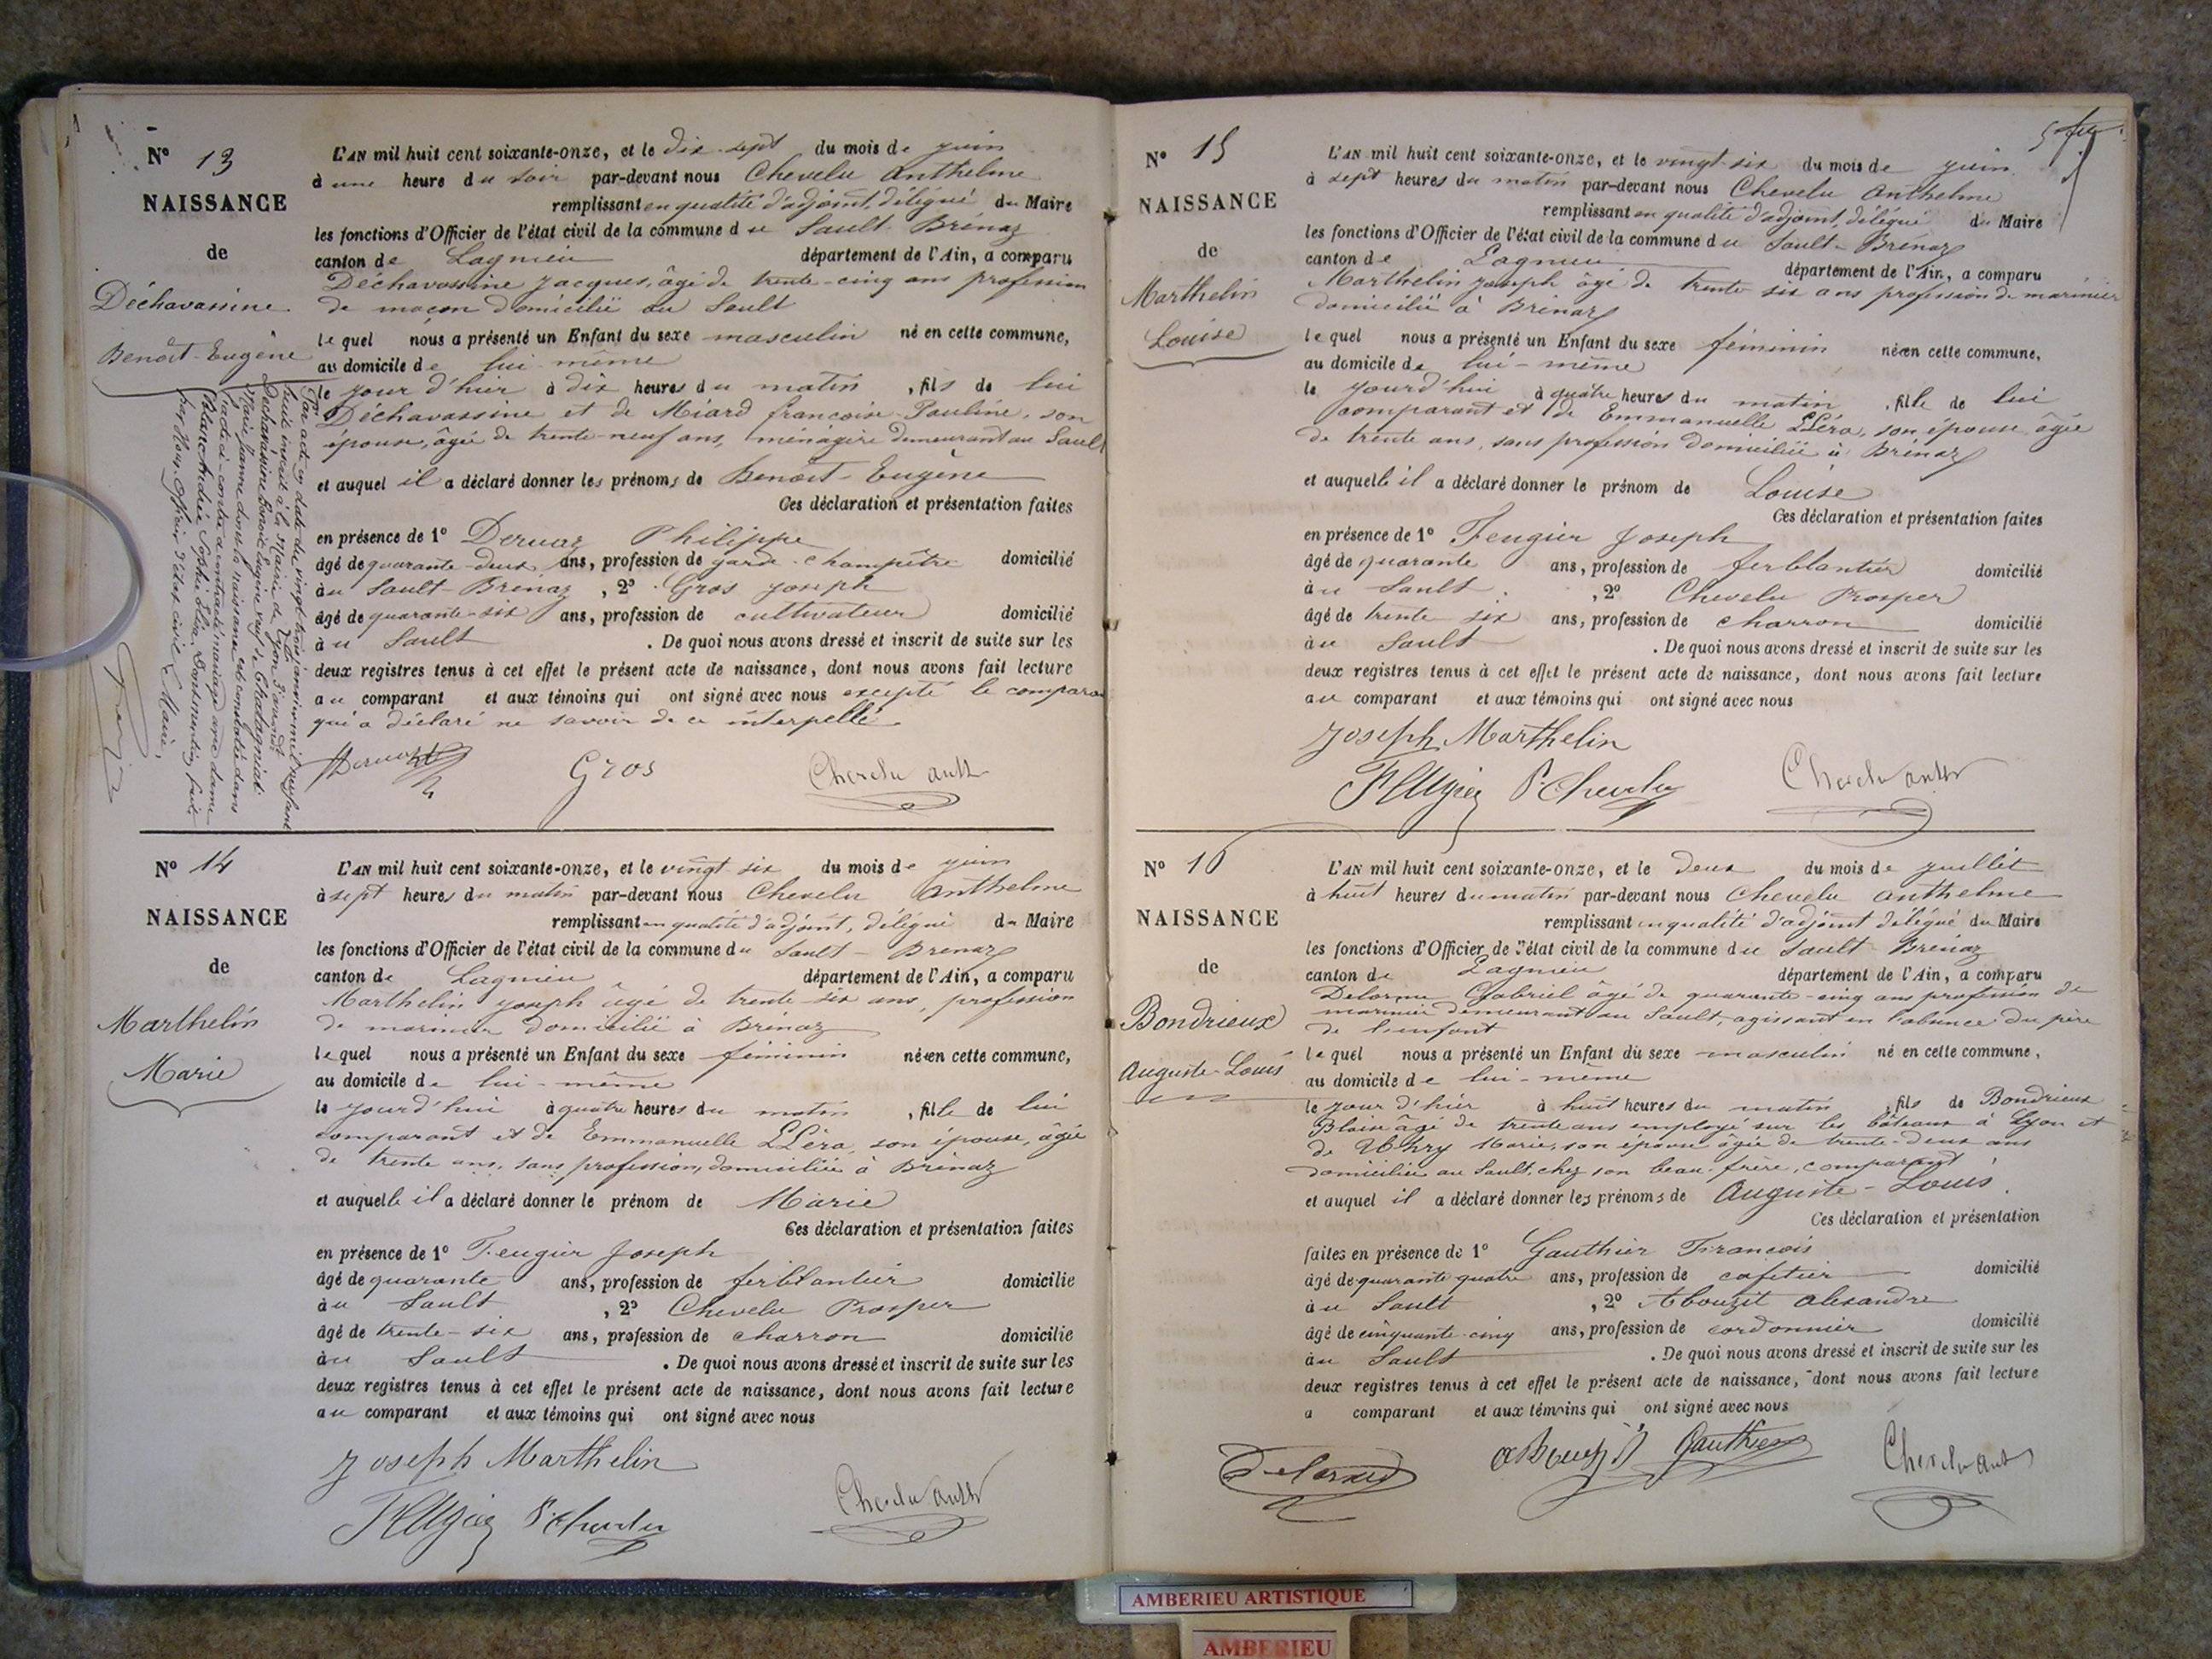 N° 13
NAISSANCE
de
Déchavassine
Benoît-Eugène
L'AN mil huit cent soixante-onze, et le dix-sept du mois de juin
à une heure du soir par-devant nous Chevelu Anthelme
remplissant en qualité d'adjoint, délégué du Maire
les fonctions d'Officier de l'état civil de la commune du Sault-Brénaz
canton de Lagnieu département de l'Ain, a comparu
Déchavassine Jacques, âgé de trente-cinq ans profession
de maçon domicilié au Sault
lequel nous a présenté un Enfant du sexe masculin né en cette commune,
au domicile de lui-même
le jour d'hier à dix heures du matin, fils de lui
Déchavassine et de Miard françoise Pauline, son
épouse, âgée de trente-neuf ans, ménagère demeurant au Sault
et auquel il a déclaré donner les prénoms de Benoît-Eugène
Ces déclaration et présentation faites
en présence de 1° Dervaz Philippe
âgé de quarante-deux ans, profession de garde-champêtre domicilié
au Sault-Brénaz, 2° Gros Joseph
âgé de quarante-six ans, profession de cultivateur domicilié
au Sault. De quoi nous avons dressé et inscrit de suite sur les
deux registres tenus à cet effet le présent acte de naissance, dont nous avons fait lecture
au comparant et aux témoins qui ont signé avec nous excepté le compara
qui a déclaré ne savoir de ce interpellé.
Gros Chevelu anth
Par acte en date du vingt huit janvier mil neuf cent
huit inscrit à la Mairie de Lyon
Déchavassine Benoît Eugène veuf de Chatagniat
Marie Jeanne dont la naissance est constatée dans
l'acte ci-contre a contracté mariage avec dame
Blanc Andrée Sophie Lélia. Dont mention faite
par Nous, Officier d'état civil & Maire.
N° 14
NAISSANCE
de
Marthelin
Marie
L'AN mil huit cent soixante-onze, et le vingt-six du mois de juin
à sept heures du matin par-devant nous Chevelu Anthelme
remplissant en qualité d'adjoint, délégué du Maire
les fonctions d'Officier de l'état civil de la commune du Sault-Brénaz
canton de Lagnieu département de l'Ain, a comparu
Marthelin Joseph âgé de trente-six ans, profession
de marinier domicilié à Brénaz
lequel nous a présenté un Enfant du sexe féminin née en cette commune,
au domicile de lui-même
le jourd'hui à quatre heures du matin, fille de lui
comparant et de Emmanuelle LLéra, son épouse, âgée
de trente ans, sans profession, domiciliée à Brénaz
et auquelle il a déclaré donner le prénom de Marie
Ces déclaration et présentation faites
en présence de 1° Feugier Joseph
âgé de quarante ans, profession de ferblantier domicilie
au Sault, 2° Chevelu Prosper
âgé de trente-six ans, profession de charron domicilie
au Sault. De quoi nous avons dressé et inscrit de suite sur les
deux registres tenus à cet effet le présent acte de naissance, dont nous avons fait lecture
au comparant et aux témoins qui ont signé avec nous
Joseph Marthelin
Feugier P. Chevelu Chevelu anth
N° 15
NAISSANCE
de
Marthelin
Louise
L'AN mil huit cent soixante-onze, et le vingt-six du mois de juin
à sept heures du matin par-devant nous Chevelu Anthelme
remplissant en qualité d'adjoint, délégué du Maire
les fonctions d'Officier de l'état civil de la commune du Sault-Brénaz
canton de Lagnieu département de l'Ain, a comparu
Marthelin Joseph âgé de trente six ans profession de marinier
domicilié à Brénaz
lequel nous a présenté un Enfant du sexe féminin née en cette commune,
au domicile de lui-même
le jourd'hui à quatre heures du matin, fille de lui
comparant et de Emmanuelle LLéra, son épouse âgée
de trente ans, sans profession domiciliée à Brénaz
et auquelle il a déclaré donner le prénom de Louise
Ces déclaration et présentation faites
en présence de 1° Feugier Joseph
âgé de quarante ans, profession de ferblantier domicilié
au Sault, 2° Chevelu Prosper
âgé de trente six ans, profession de charron domicilié
au Sault. De quoi nous avons dressé et inscrit de suite sur les
deux registres tenus à cet effet le présent acte de naissance, dont nous avons fait lecture
au comparant et aux témoins qui ont signé avec nous
Joseph Marthelin
Feugier P. Chevelu Chevelu anth
N° 16
NAISSANCE
de
Bondrieux
Auguste-Louis
L'AN mil huit cent soixante-onze, et le deux du mois de juillet
à huit heures du matin par-devant nous Chevelu Anthelme
remplissant en qualité d'adjoint délégué du Maire
les fonctions d'Officier de l'état civil de la commune du Sault-Brénaz
canton de Lagnieu département de l'Ain, a comparu
Delorme Gabriel âgé de quarante-cinq ans profession de
marinier demeurant au Sault, agissant en l'absence du père
de l'enfant
lequel nous a présenté un Enfant du sexe masculin né en cette commune,
au domicile de lui-même
le jour d'hier à huit heures du matin, fils de Bondrieux
Blaise âgé de trente ans employé sur les bâteaux à Lyon et
de Uhry Marie, son épouse âgée de trente-deux ans
domiciliée au Sault, chez son beau-frère, comparant
et auquel il a déclaré donner les prénoms de Auguste-Louis.
Ces déclaration et présentation
faites en présence de 1° Gauthier François
âgé de quarante quatre ans, profession de cafetier domicilié
au Sault, 2° Abouzit Alexandre
âgé de cinquante-cinq ans, profession de cordonnier domicilié
au Sault. De quoi nous avons dressé et inscrit de suite sur les
deux registres tenus à cet effet le présent acte de naissance, dont nous avons fait lecture
a comparant et aux témoins qui ont signé avec nous
Delorme Abouzit Gauthier Chevelu anth
AMBERIEU ARTISTIQUE
AMBERIEU